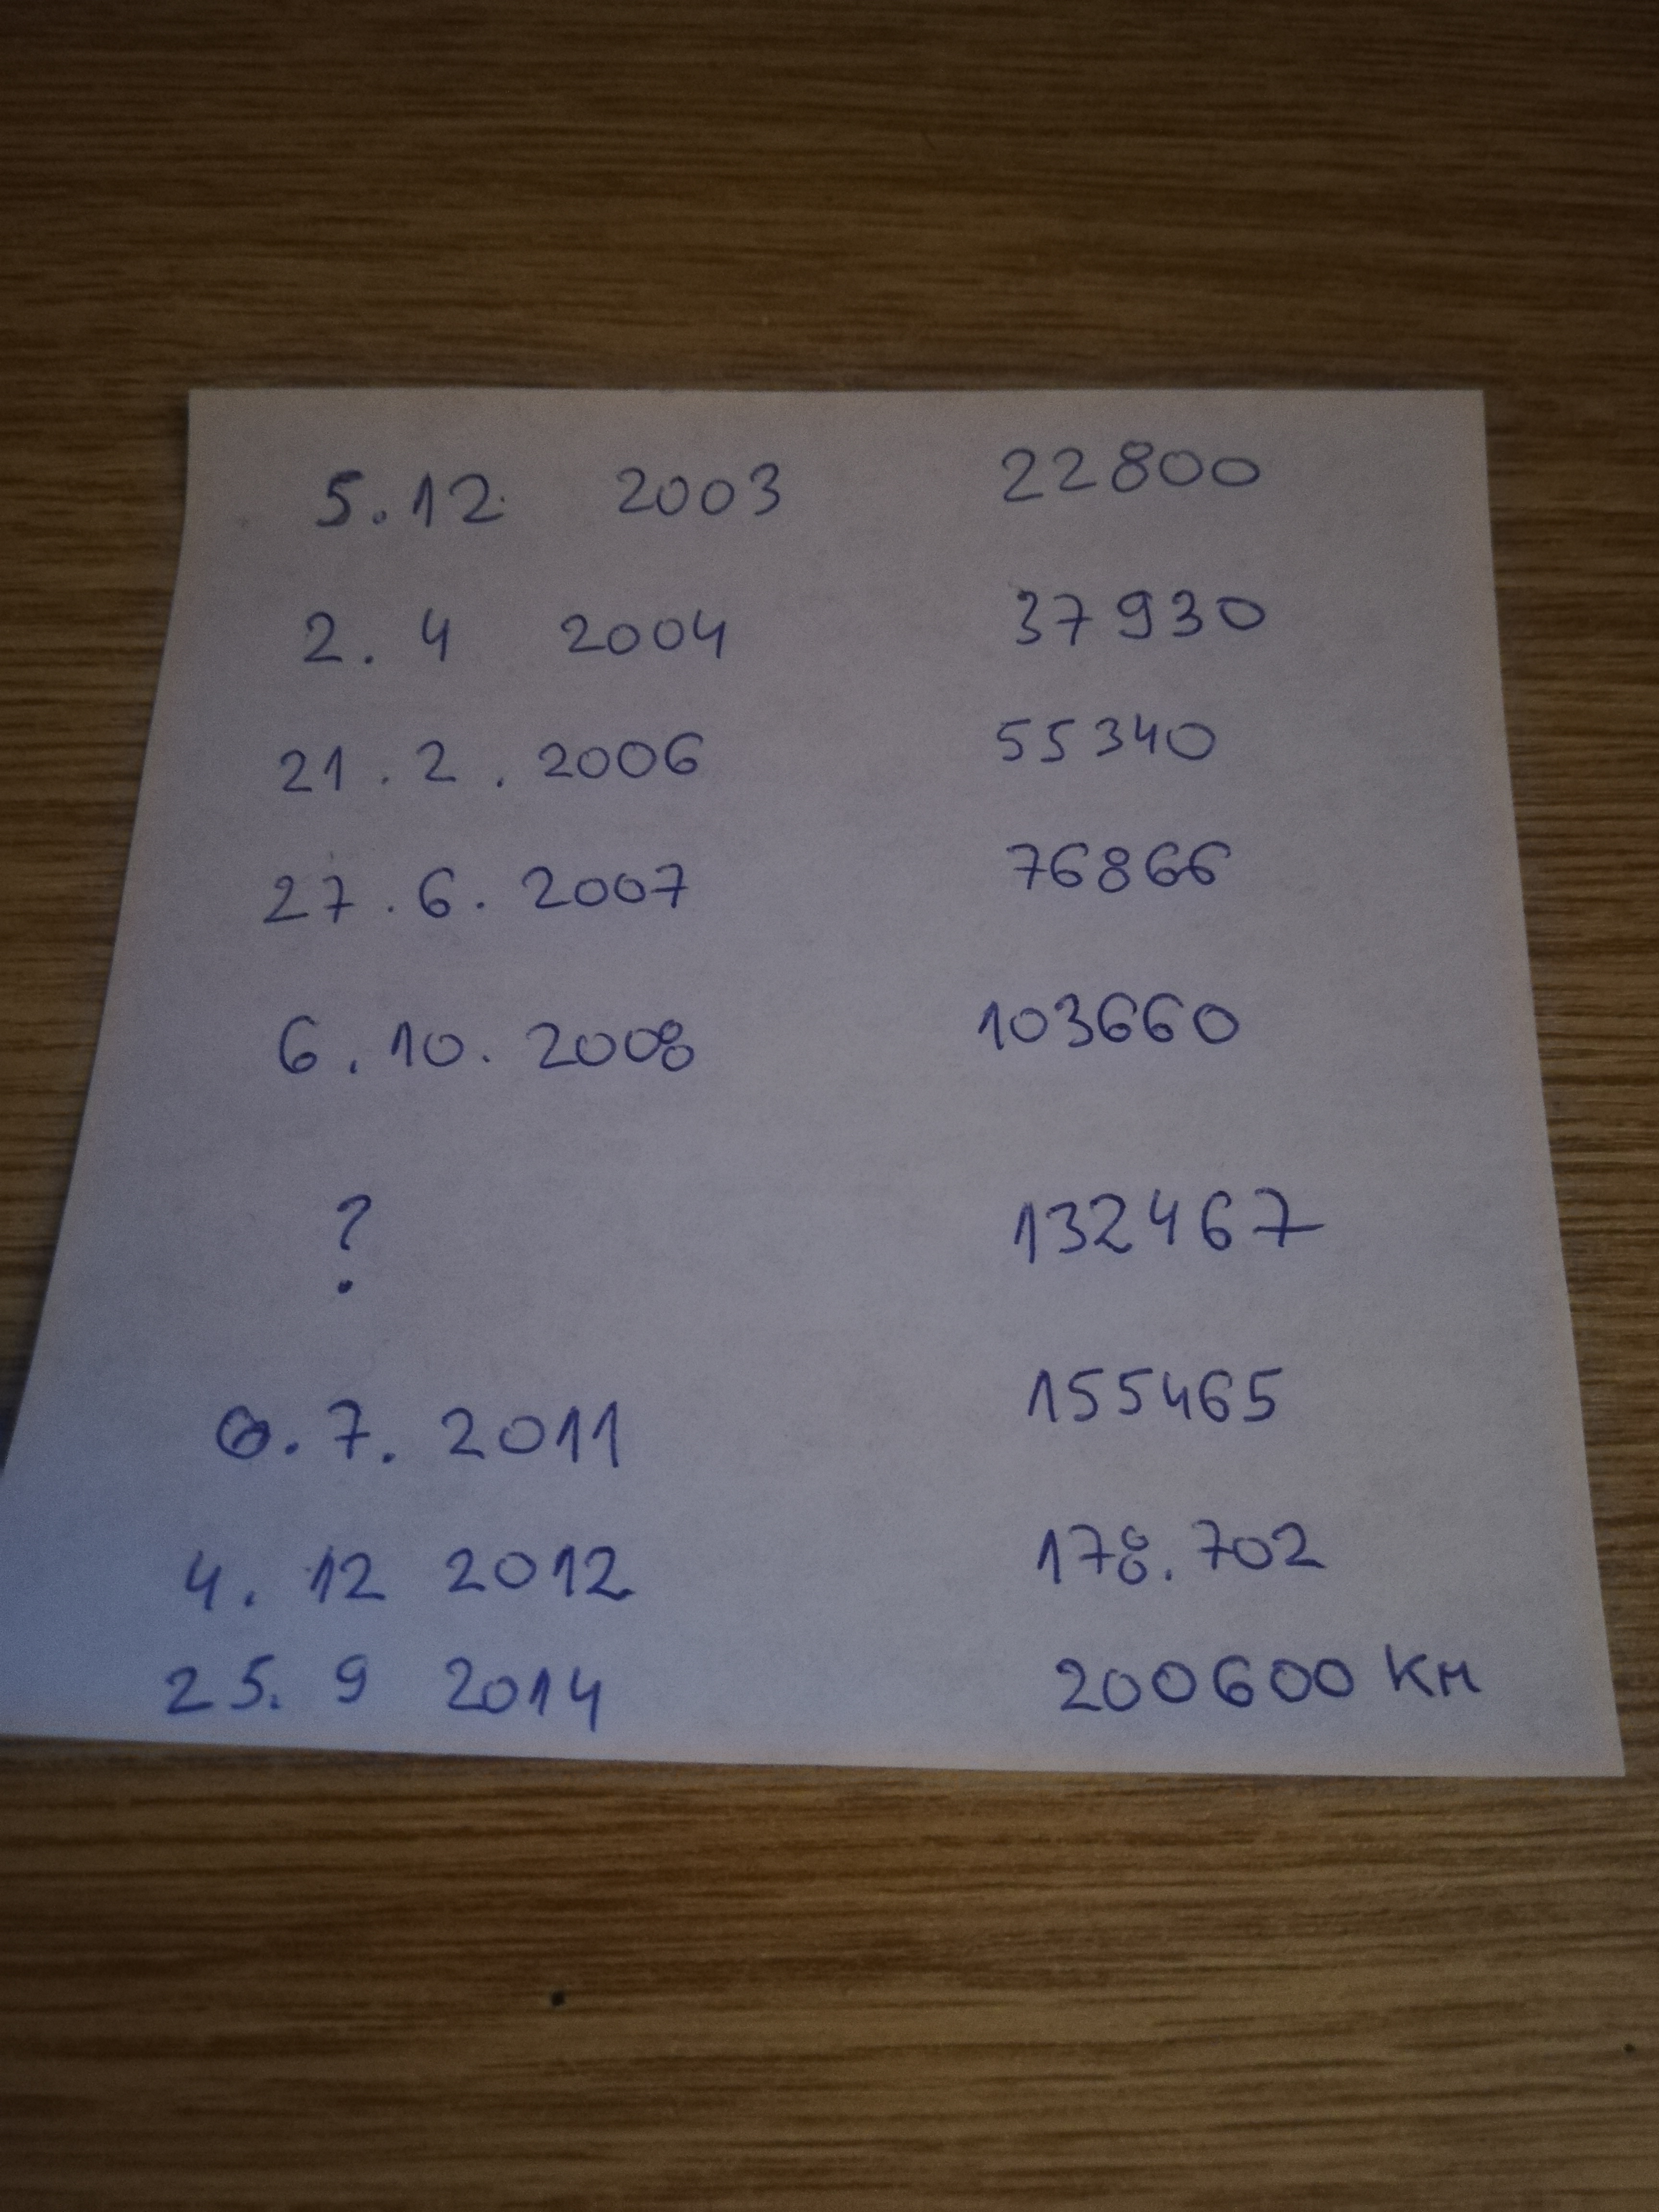 5.12 2003 22800
2. 4 2004 37930
21. 2. 2006 55340
27. 6. 2007 76866
6. 10. 2008 103660
? 132467
7. 2011 155465
4. 12 2012 178.702
25. 9 2014 200600 KM